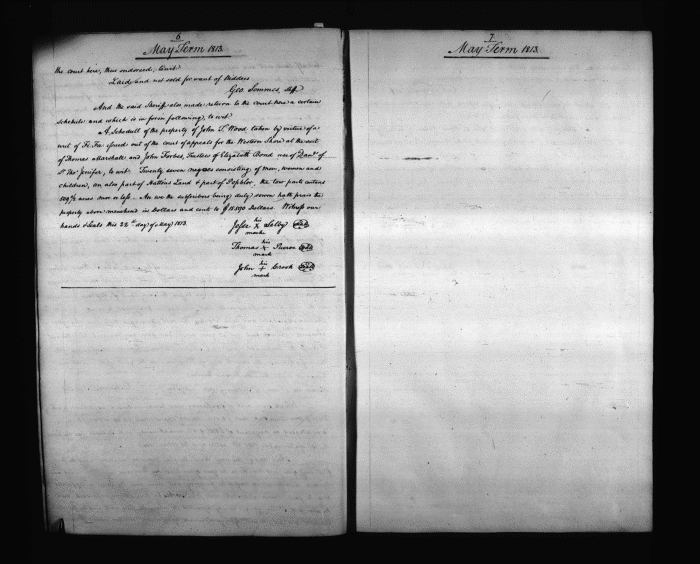 6
May Term 1813.
the court here, thus endorsed, to wit.
Laid and not sold for want of bidders
Geo. Semmes, Shff
And the said Sheriff also made return to the court here a certain
schedule and which is in form following, to wit.
A Schedull of the property of John T. Wood taken by virtue of a
writ of Fi. Fa. issued out of the court of appeals for the Western Shore at the suit
of Thomas Marshall and John Forbes, Trustees of Elizabeth Bond use of Danl. of
St. Thos. Jenifer, to wit. Twenty seven negroes consisting of men, women and
children, an also part of Land & part of Poplor, the tow parts containd
509½ acres mor or less. An we the subscribers being duly sworn hath prais the
property above menchend in Dollars and cents to $ 11590 Dollars. Witness our
hands & Seals this 22d day of May 1813.
his
Jesse X Selby Seal
marke
his
Thomas X Seal
mark
his
John + Crook Seal
mark
7
May Term 1813.